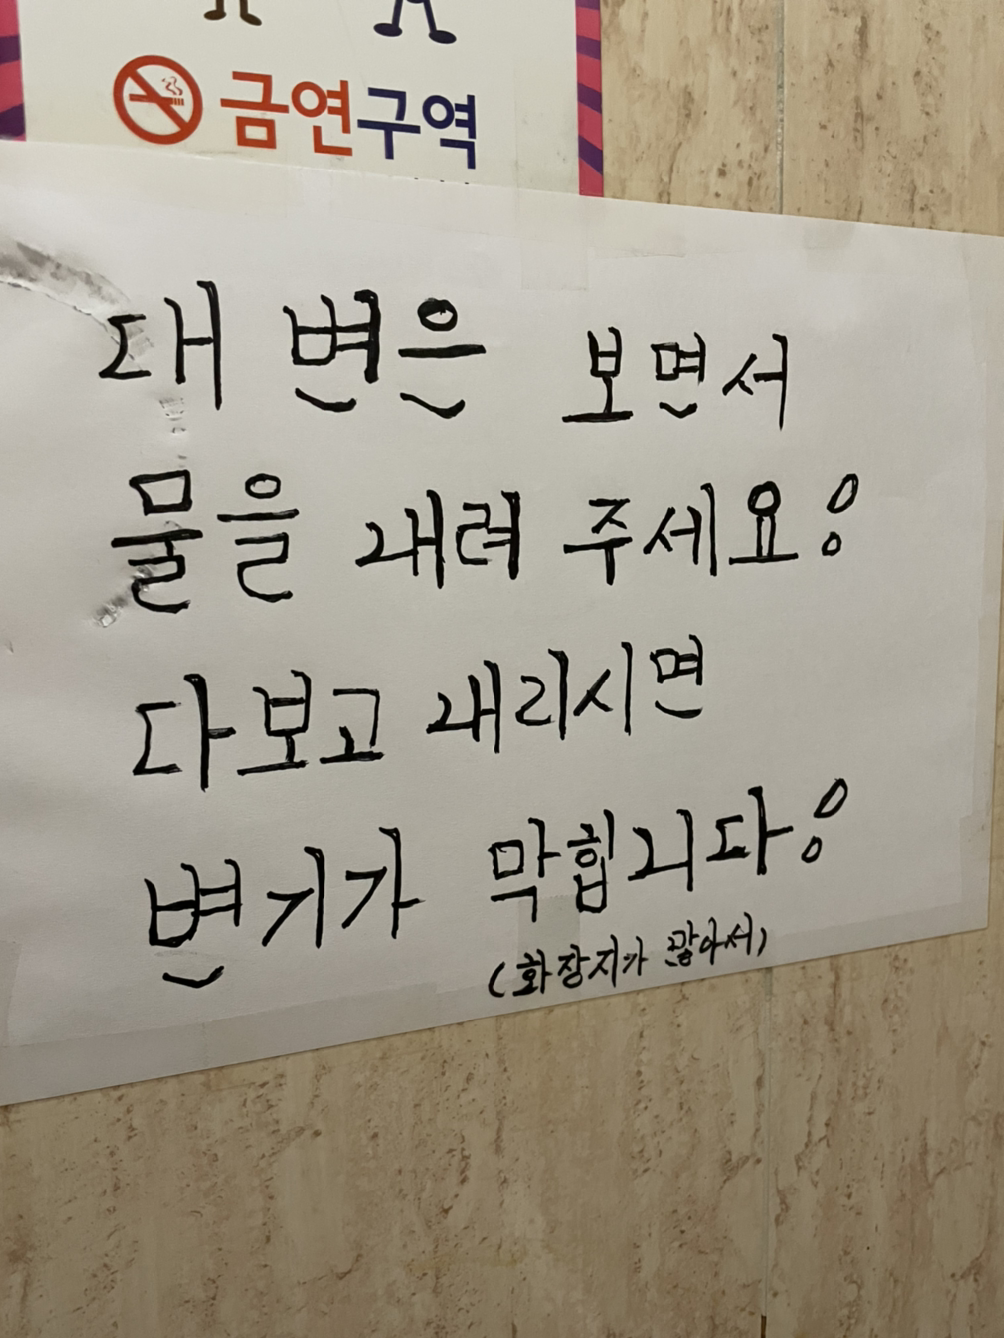 금연구역
대변은 보면서
물을 내려 주세요!
다보고 내리시면
변기가 막힙니다!
(화장지가 많아서)